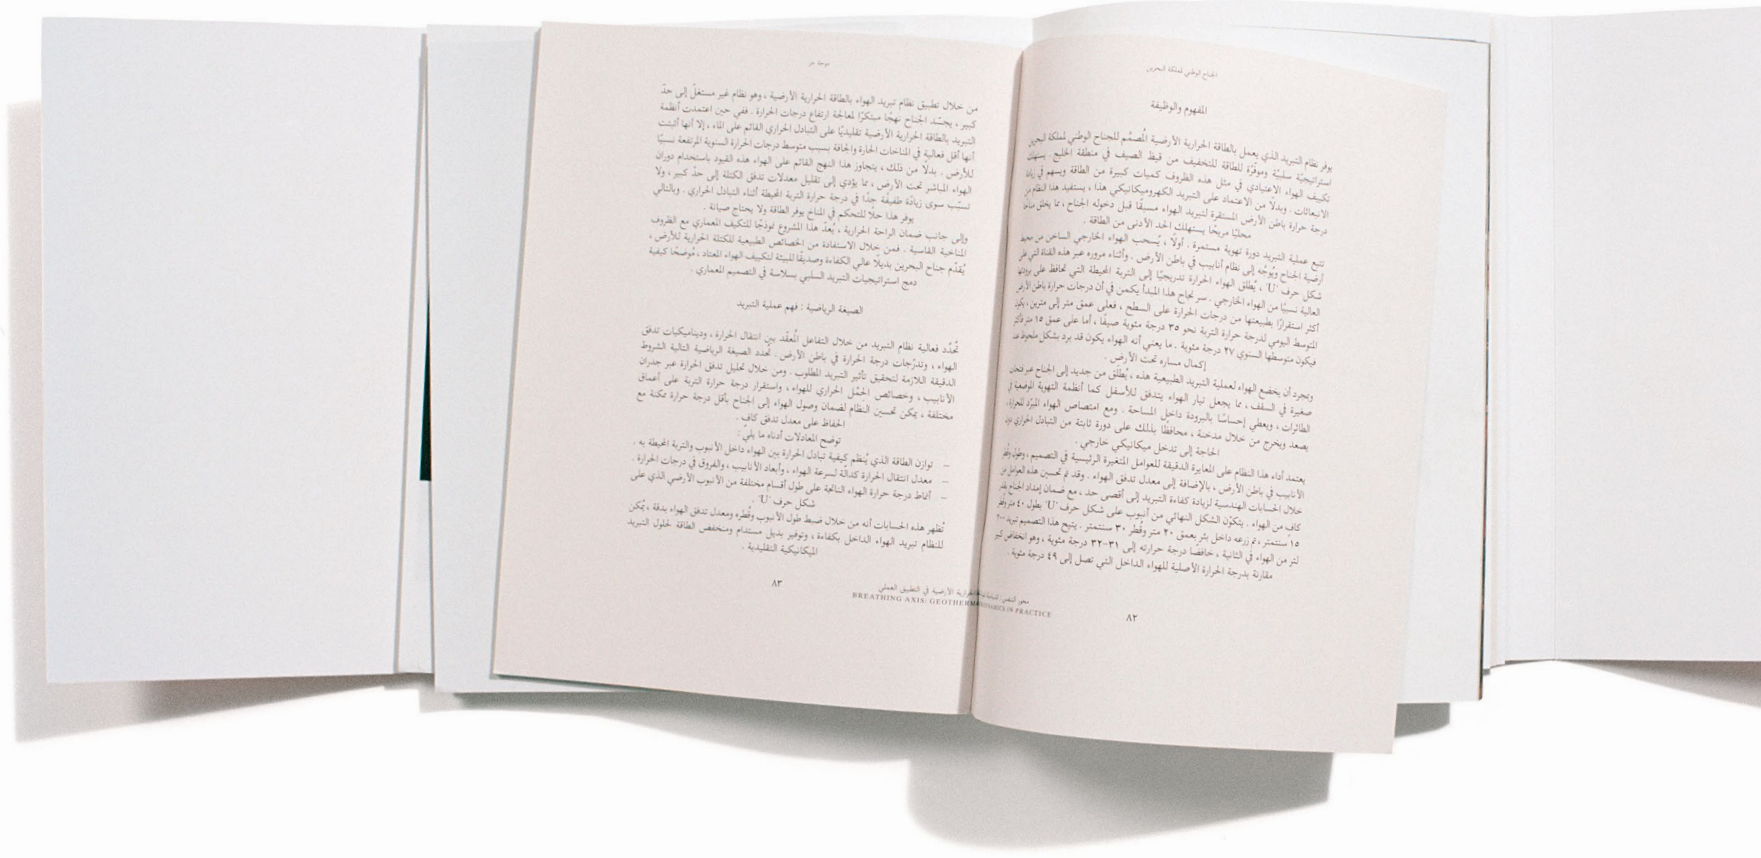 الجناح الوطني لمملكة البحرين
المفهوم والوظيفة
يوفر نظام التبريد الذي يعمل بالطاقة الحرارية الأرضية المُصمَّم للجناح الوطني لمملكة البحرين
استراتيجيّة سلبيّة وموفّرة للطاقة للتخفيف من قيظ الصيف في منطقة الخليج. يستهلك
تكييف الهواء الاعتيادي في مثل هذه الظروف كميات كبيرة من الطاقة ويسهم في زيادة
الانبعاثات. وبدلًا من الاعتماد على التبريد الكهروميكانيكي هذا، يستفيد هذا النظام من
درجة حرارة باطن الأرض المستقرة لتبريد الهواء مسبقًا قبل دخوله الجناح، مما يخلق مناخًا
محليًا مريحًا يستهلك الحد الأدنى من الطاقة.
تتبع عملية التبريد دورة تهوية مستمرة. أولًا، يُسحب الهواء الخارجي الساخن من محيط
أرضية الجناح ويُوجَّه إلى نظام أنابيب في باطن الأرض. وأثناء مروره عبر هذه القناة التي على
شكل حرف 'U'، يُطلق الهواء الحرارة تدريجيًا إلى التربة المحيطة التي تحافظ على برودتها
العالية نسبيًا من الهواء الخارجي. سر نجاح هذا المبدأ يكمن في أن درجات حرارة باطن الأرض
أكثر استقرارًا بطبيعتها من درجات الحرارة على السطح، فعلى عمق متر إلى مترين، يكون
المتوسط اليومي لدرجة حرارة التربة نحو ٣٥ درجة مئوية صيفًا، أما على عمق ١٥ متر فأكثر
فيكون متوسطها السنوي ٢٧ درجة مئوية. ما يعني أنه الهواء يكون قد برد بشكل ملحوظ عند
إكمال مساره تحت الأرض.
وبمجرد أن يخضع الهواء لعملية التبريد الطبيعية هذه، يُطلق من جديد إلى الجناح عبر فتحات
صغيرة في السقف، مما يجعل تيار الهواء يتدفق للأسفل كما أنظمة التهوية الموضعية في
الطائرات، ويعطي إحساسًا بالبرودة داخل المساحة. ومع امتصاص الهواء المبرّد للحرارة،
يصعد ويخرج من خلال مدخنة، محافظًا بذلك على دورة ثابتة من التبادل الحراري دون
الحاجة إلى تدخل ميكانيكي خارجي.
يعتمد أداء هذا النظام على المعايرة الدقيقة للعوامل المتغيرة الرئيسية في التصميم، وطول وقُطر
الأنابيب في باطن الأرض، بالإضافة إلى معدل تدفق الهواء. وقد تم تحسين هذه العوامل من
خلال الحسابات الهندسية لزيادة كفاءة التبريد إلى أقصى حد، مع ضمان إمداد الجناح بقدر
كافٍ من الهواء. يتكوّن الشكل النهائي من أنبوب على شكل حرف 'U' بطول ٤٠ متر وقُطر
١٥ سنتمتر، تم زرعه داخل بئر بعمق ٢٠ متر وقُطر ٣٠ سنتمتر. يتيح هذا التصميم تبريد ٢٠٠
لتر من الهواء في الثانية، خافضًا درجة حرارته إلى ٣١–٣٢ درجة مئوية، وهو انخفاض كبير
مقارنة بدرجة الحرارة الأصلية للهواء الداخل التي تصل إلى ٤٩ درجة مئوية.
٨٢
موجة حر
من خلال تطبيق نظام تبريد الهواء بالطاقة الحرارية الأرضية، وهو نظام غير مستغلّ إلى حدّ
كبير، يجسّد الجناح نهجًا مبتكرًا لمعالجة ارتفاع درجات الحرارة. ففي حين اعتمدت أنظمة
التبريد بالطاقة الحرارية الأرضية تقليديًا على التبادل الحراري القائم على الماء، إلا أنها أثبتت
أنها أقل فعالية في المناخات الحارة والجافة بسبب متوسط درجات الحرارة السنوية المرتفعة نسبيًا
للأرض. بدلًا من ذلك، يتجاوز هذا النهج القائم على الهواء هذه القيود باستخدام دوران
الهواء المباشر تحت الأرض، مما يؤدي إلى تقليل معدلات تدفق الكتلة إلى حدّ كبير، ولا
تسبّب سوى زيادة طفيفة جدًا في درجة حرارة التربة المحيطة أثناء التبادل الحراري. وبالتالي
يوفر هذا حلًا للتحكم في المناخ يوفر الطاقة ولا يحتاج صيانة.
وإلى جانب ضمان الراحة الحرارية، يُعدّ هذا المشروع نموذجًا للتكيف المعماري مع الظروف
المناخية القاسية. فمن خلال الاستفادة من الخصائص الطبيعية للكتلة الحرارية للأرض،
يُقدّم جناح البحرين بديلًا عالي الكفاءة وصديقًا للبيئة لتكييف الهواء المعتاد، مُوضحًا كيفية
دمج استراتيجيات التبريد السلبي بسلاسة في التصميم المعماري.
الصيغة الرياضية: فهم عملية التبريد
تُحدَّد فعالية نظام التبريد من خلال التفاعل المُعقَّد بين انتقال الحرارة، وديناميكيات تدفق
الهواء، وتدرّجات درجة الحرارة في باطن الأرض. تُحدد الصيغة الرياضية التالية الشروط
الدقيقة اللازمة لتحقيق تأثير التبريد المطلوب. ومن خلال تحليل تدفق الحرارة عبر جدران
الأنابيب، وخصائص الحَمْل الحراري للهواء، واستقرار درجة حرارة التربة على أعماق
مختلفة، يمكن تحسين النظام لضمان وصول الهواء إلى الجناح بأقل درجة حرارة ممكنة مع
الحفاظ على معدل تدفق كاف.
توضح المعادلات أدناه ما يلي:
– توازن الطاقة الذي يُنظم كيفية تبادل الحرارة بين الهواء داخل الأنبوب والتربة المحيطة به.
– معدل انتقال الحرارة كدالة لسرعة الهواء، وأبعاد الأنابيب، والفروق في درجات الحرارة.
– أنماط درجة حرارة الهواء الناتجة على طول أقسام مختلفة من الأنبوب الأرضي الذي على
شكل حرف 'U'.
تُظهر هذه الحسابات أنه من خلال ضبط طول الأنبوب وقُطره ومعدل تدفق الهواء بدقة، يُمكن
للنظام تبريد الهواء الداخل بكفاءة، وتوفير بديل مستدام ومنخفض الطاقة لحلول التبريد
الميكانيكية التقليدية.
٨٣
محور التنفس: الحرارية الأرضية في التطبيق العملي
BREATHING AXIS: GEOTHERMODYNAMICS IN PRACTICE